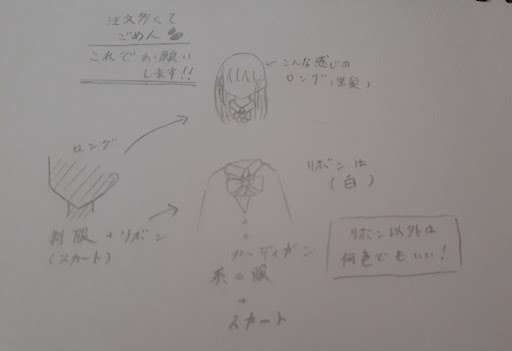 注文多くて
ごめん
これでお願い
します!!
←こんな感じの
ロング(黒髪)
ロング
リボンは
(白)
制服+リボン
(スカート)
カーディガン
系の服
+
スカート
リボン以外は
何色でもいい!